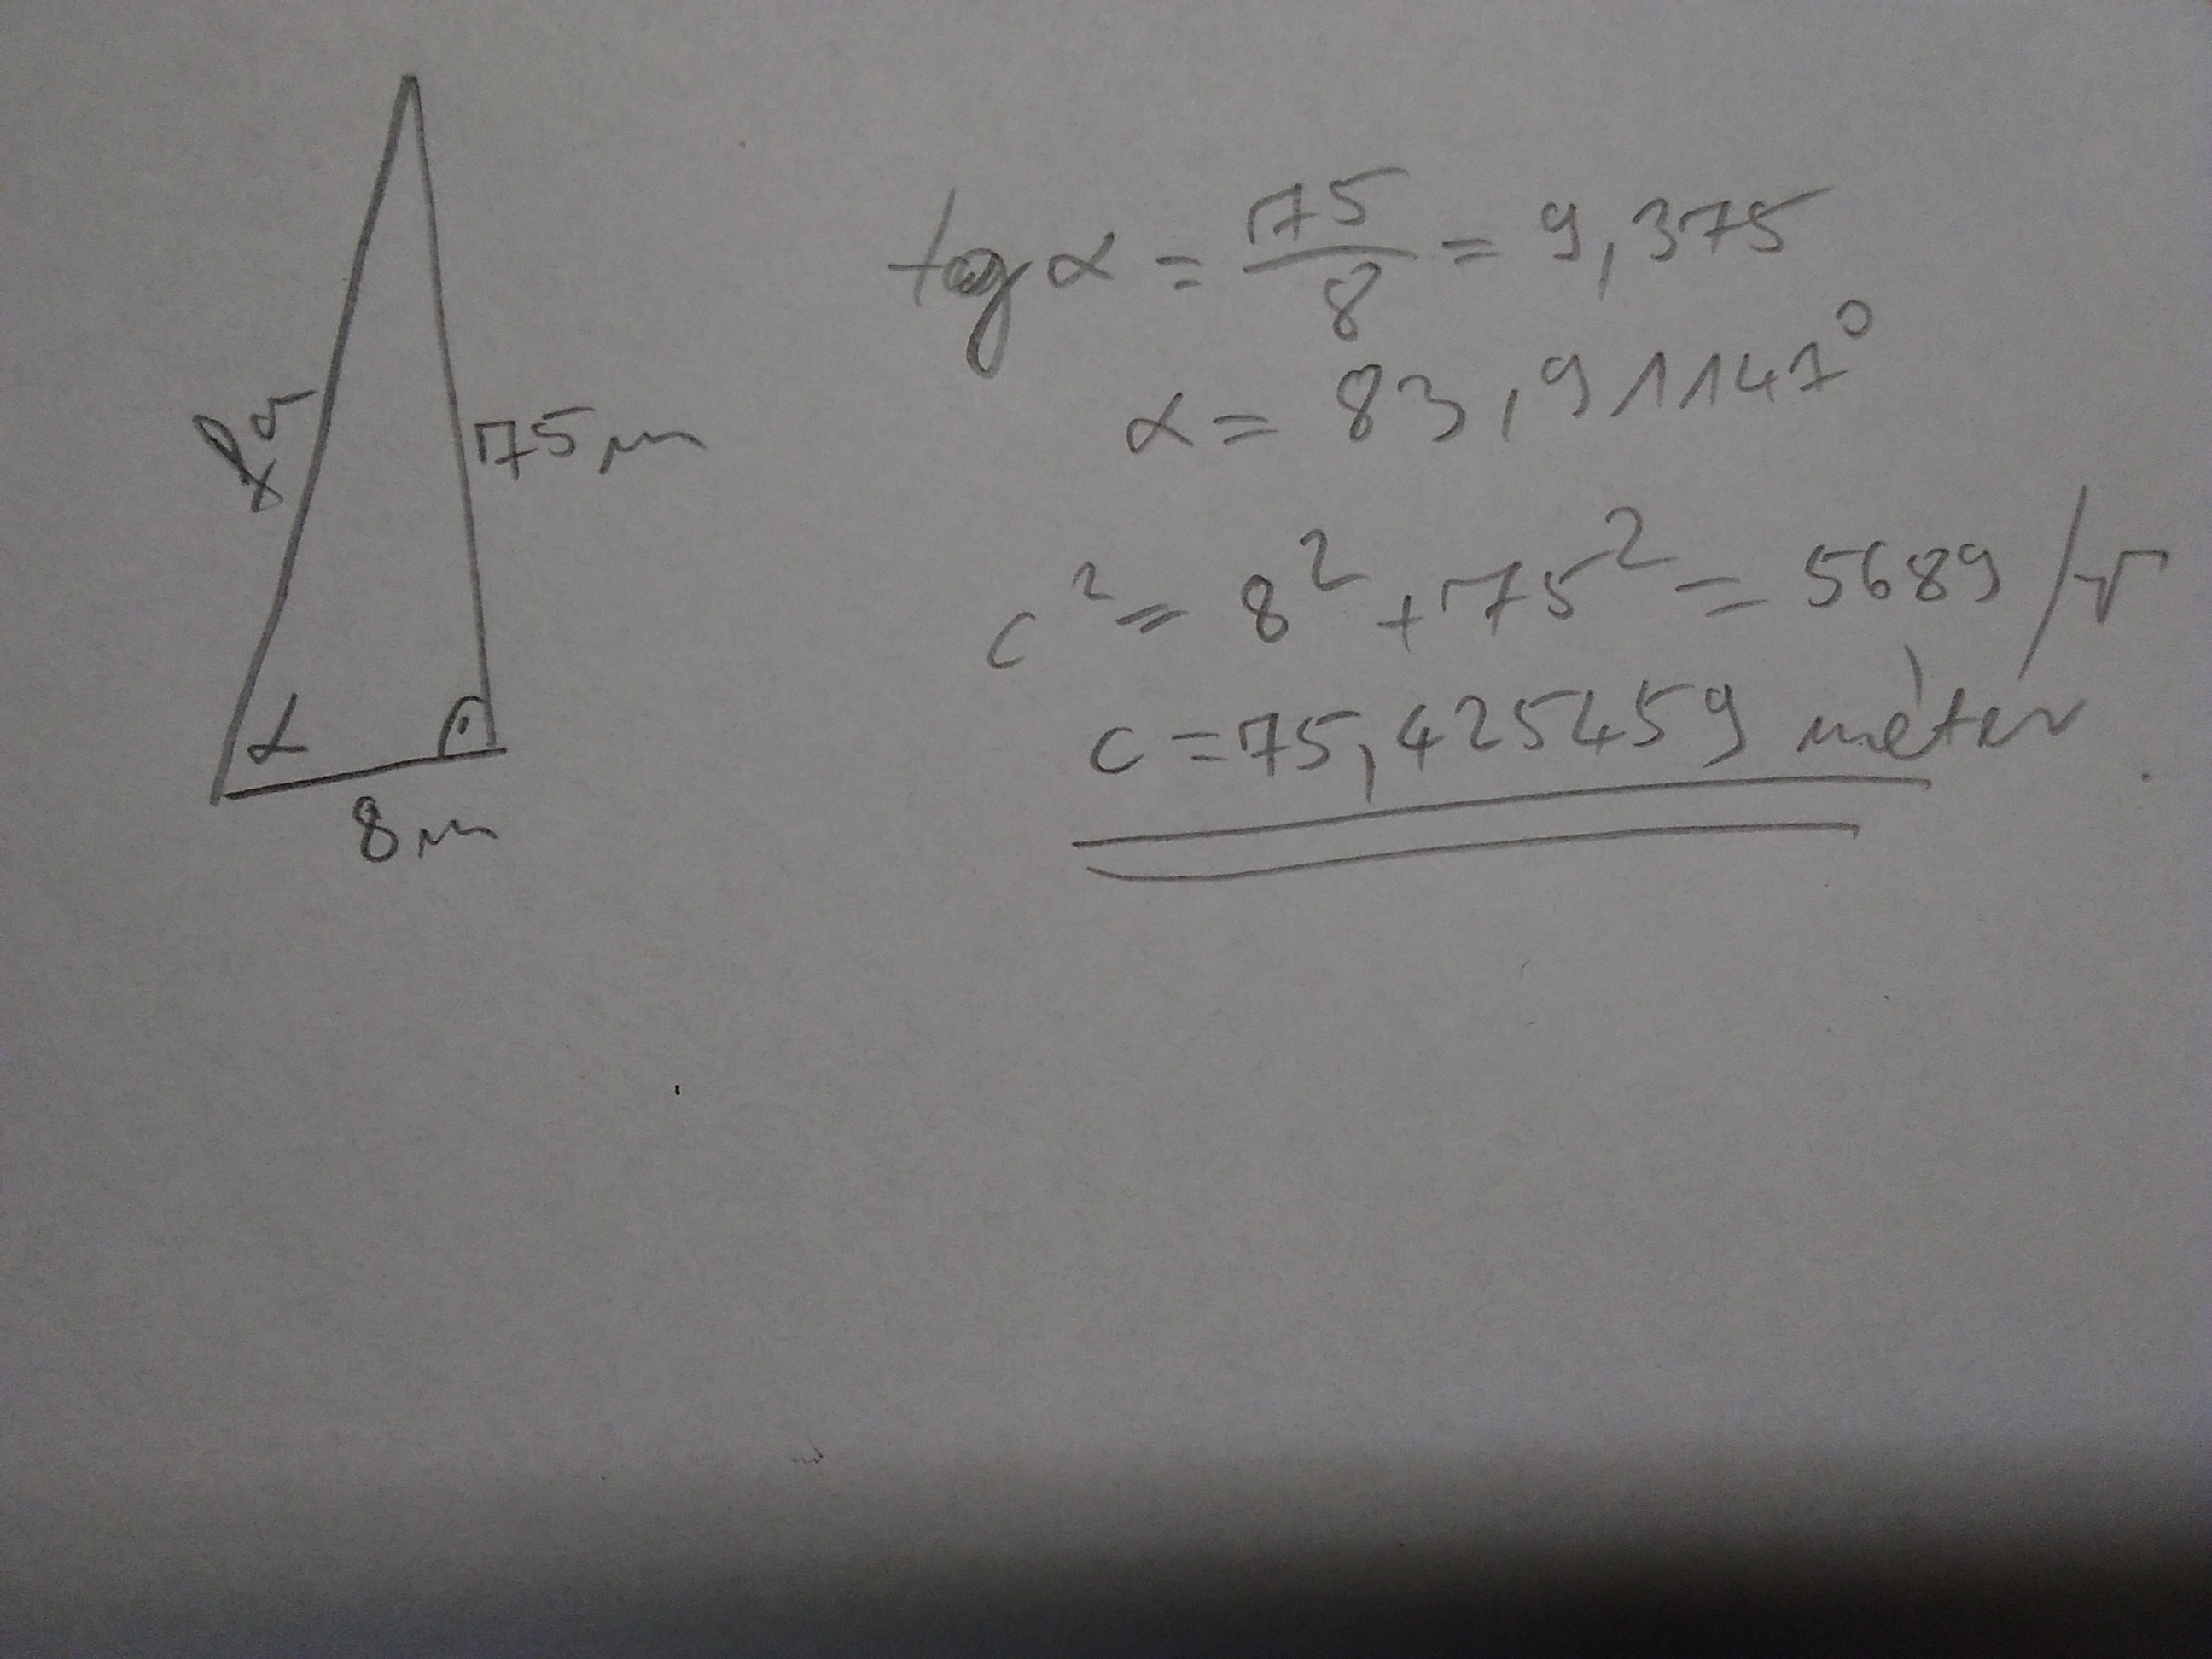 75m
α
8m
tg α = 75/8 = 9,375
α = 83,91147°
c² = 8² + 75² = 5689 /√
c = 75,425459 méter